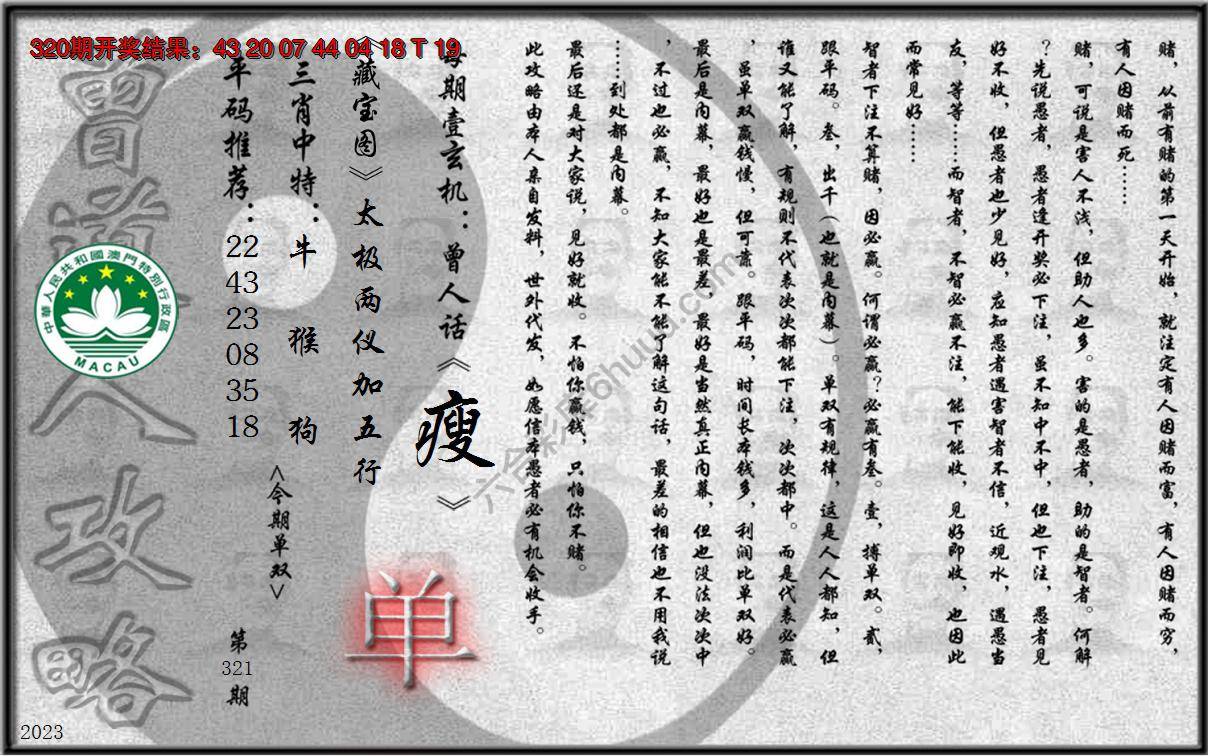 320期开奖结果：43 20 07 44 04 18 T 19
赌，从前有赌的第一天开始，就注定有人因赌而富，有人因赌而穷，
有人因赌而死……
赌，可说是害人不浅，但助人也多。害的是愚者，助的是智者。何解
？先说愚者，愚者逢开奖必下注，虽不知中不中，但也下注，愚者见
好不收，但愚者也少见好，应知愚者遇害智者不信，近观水，遇愚当
友，等等……而智者，不智必赢不注，能下能收，见好即收，也因此
而常见好……
智者下注不算赌，因必赢。何谓必赢？必赢有叁。壹，搏单双。贰，
跟平码。叁，出千（也就是内幕）。单双有规律，这是人人都知，但
谁又能了解，有规则不代表次次都能下注，次次都中。而是代表必赢
，虽单双赢钱慢，但可靠。跟平码，时间长本钱多，利润比单双好。
最后是内幕，最好也是最差，最好是当然真正内幕，但也没法次次中
，不过也必赢，不知大家能不能了解这句话，最差的相信也不用我说
……到处都是内幕。
最后还是对大家说，见好就收。不怕你赢钱，只怕你不赌。
此攻略由本人亲自发料，世外代发，如愿信本愚者必有机会收手。
每期壹玄机：曾人话《瘦》
《藏宝图》太极两仪加五行
三肖中特：牛 猴 狗
平码推荐：22 43 23 08 35 18
<今期单双>
单
第321期
曾道人攻略
中華人民共和國澳門特別行政區
MACAU
2023